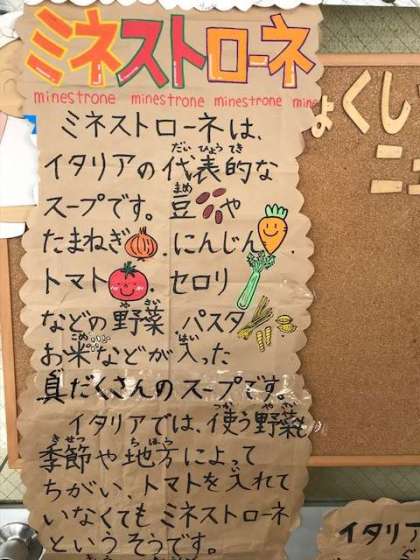 ミネストローネ
minestrone minestrone minestrone min
ミネストローネは、
だいひょうてき
イタリアの代表的な
まめ
スープです。豆や
たまねぎ、にんじん、
トマト、セロリ
やさい
などの野菜、パスタ、
こめ はい
お米などが入った
具だくさんのスープです。
つか やさい
イタリアでは、使う野菜も
きせつ ちほう
季節や地方によって
い
ちがい、トマトを入れて
いなくてもミネストローネ
というそうです。
ょくし
ニュ
イタリア